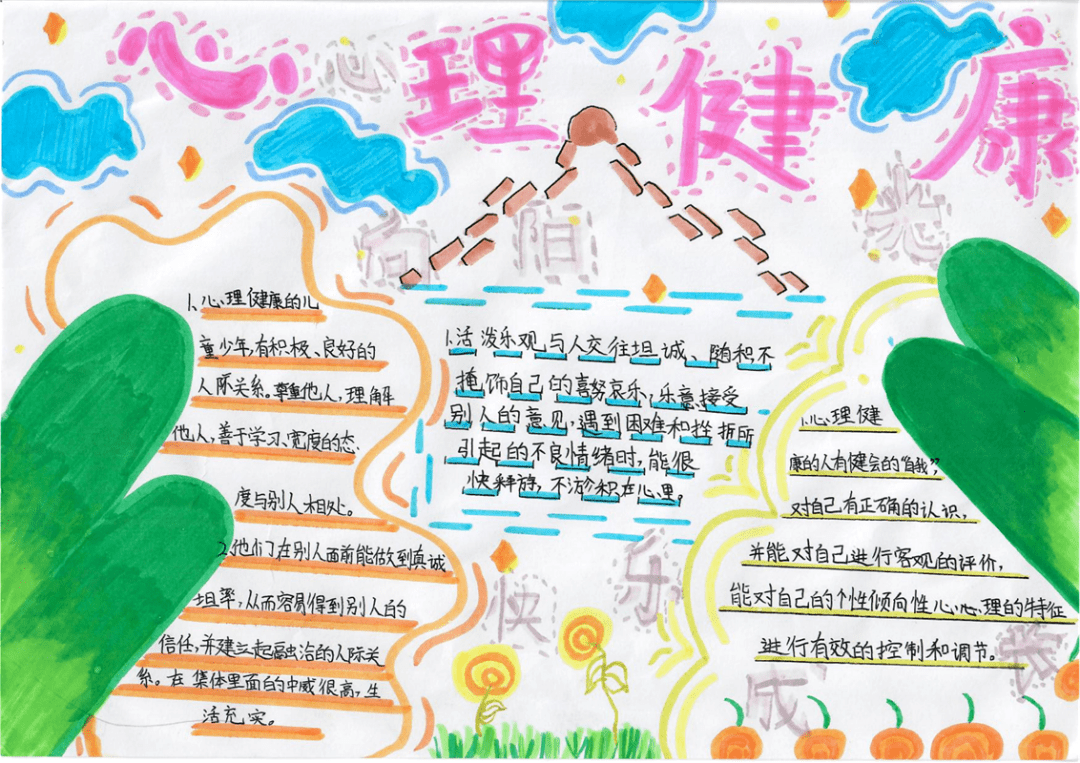 心理健康
心向阳光
1、心理健康的儿
童少年,有积极、良好的
人际关系。尊重他人,理解
他人,善于学习、宽度的态
度与别人相处。
2、他们在别人面前能做到真诚
坦率,从而容易得到别人的
信任,并建立起融洽的人际关
系。在集体里面的中威很高,生
活充实。
1.活泼乐观与人交往坦诚、随积不
掩饰自己的喜努哀乐,乐意接受
别人的意见,遇到困难和挫折所
引起的不良情绪时,能很
快释放,不沴积在心里。
1.心理健
康的人有健会的“自我”,
对自己有正确的认识,
并能对自己进行客观的评价,
能对自己的个性倾向性心心理的特征
进行有效的控制和调节。
快乐成长